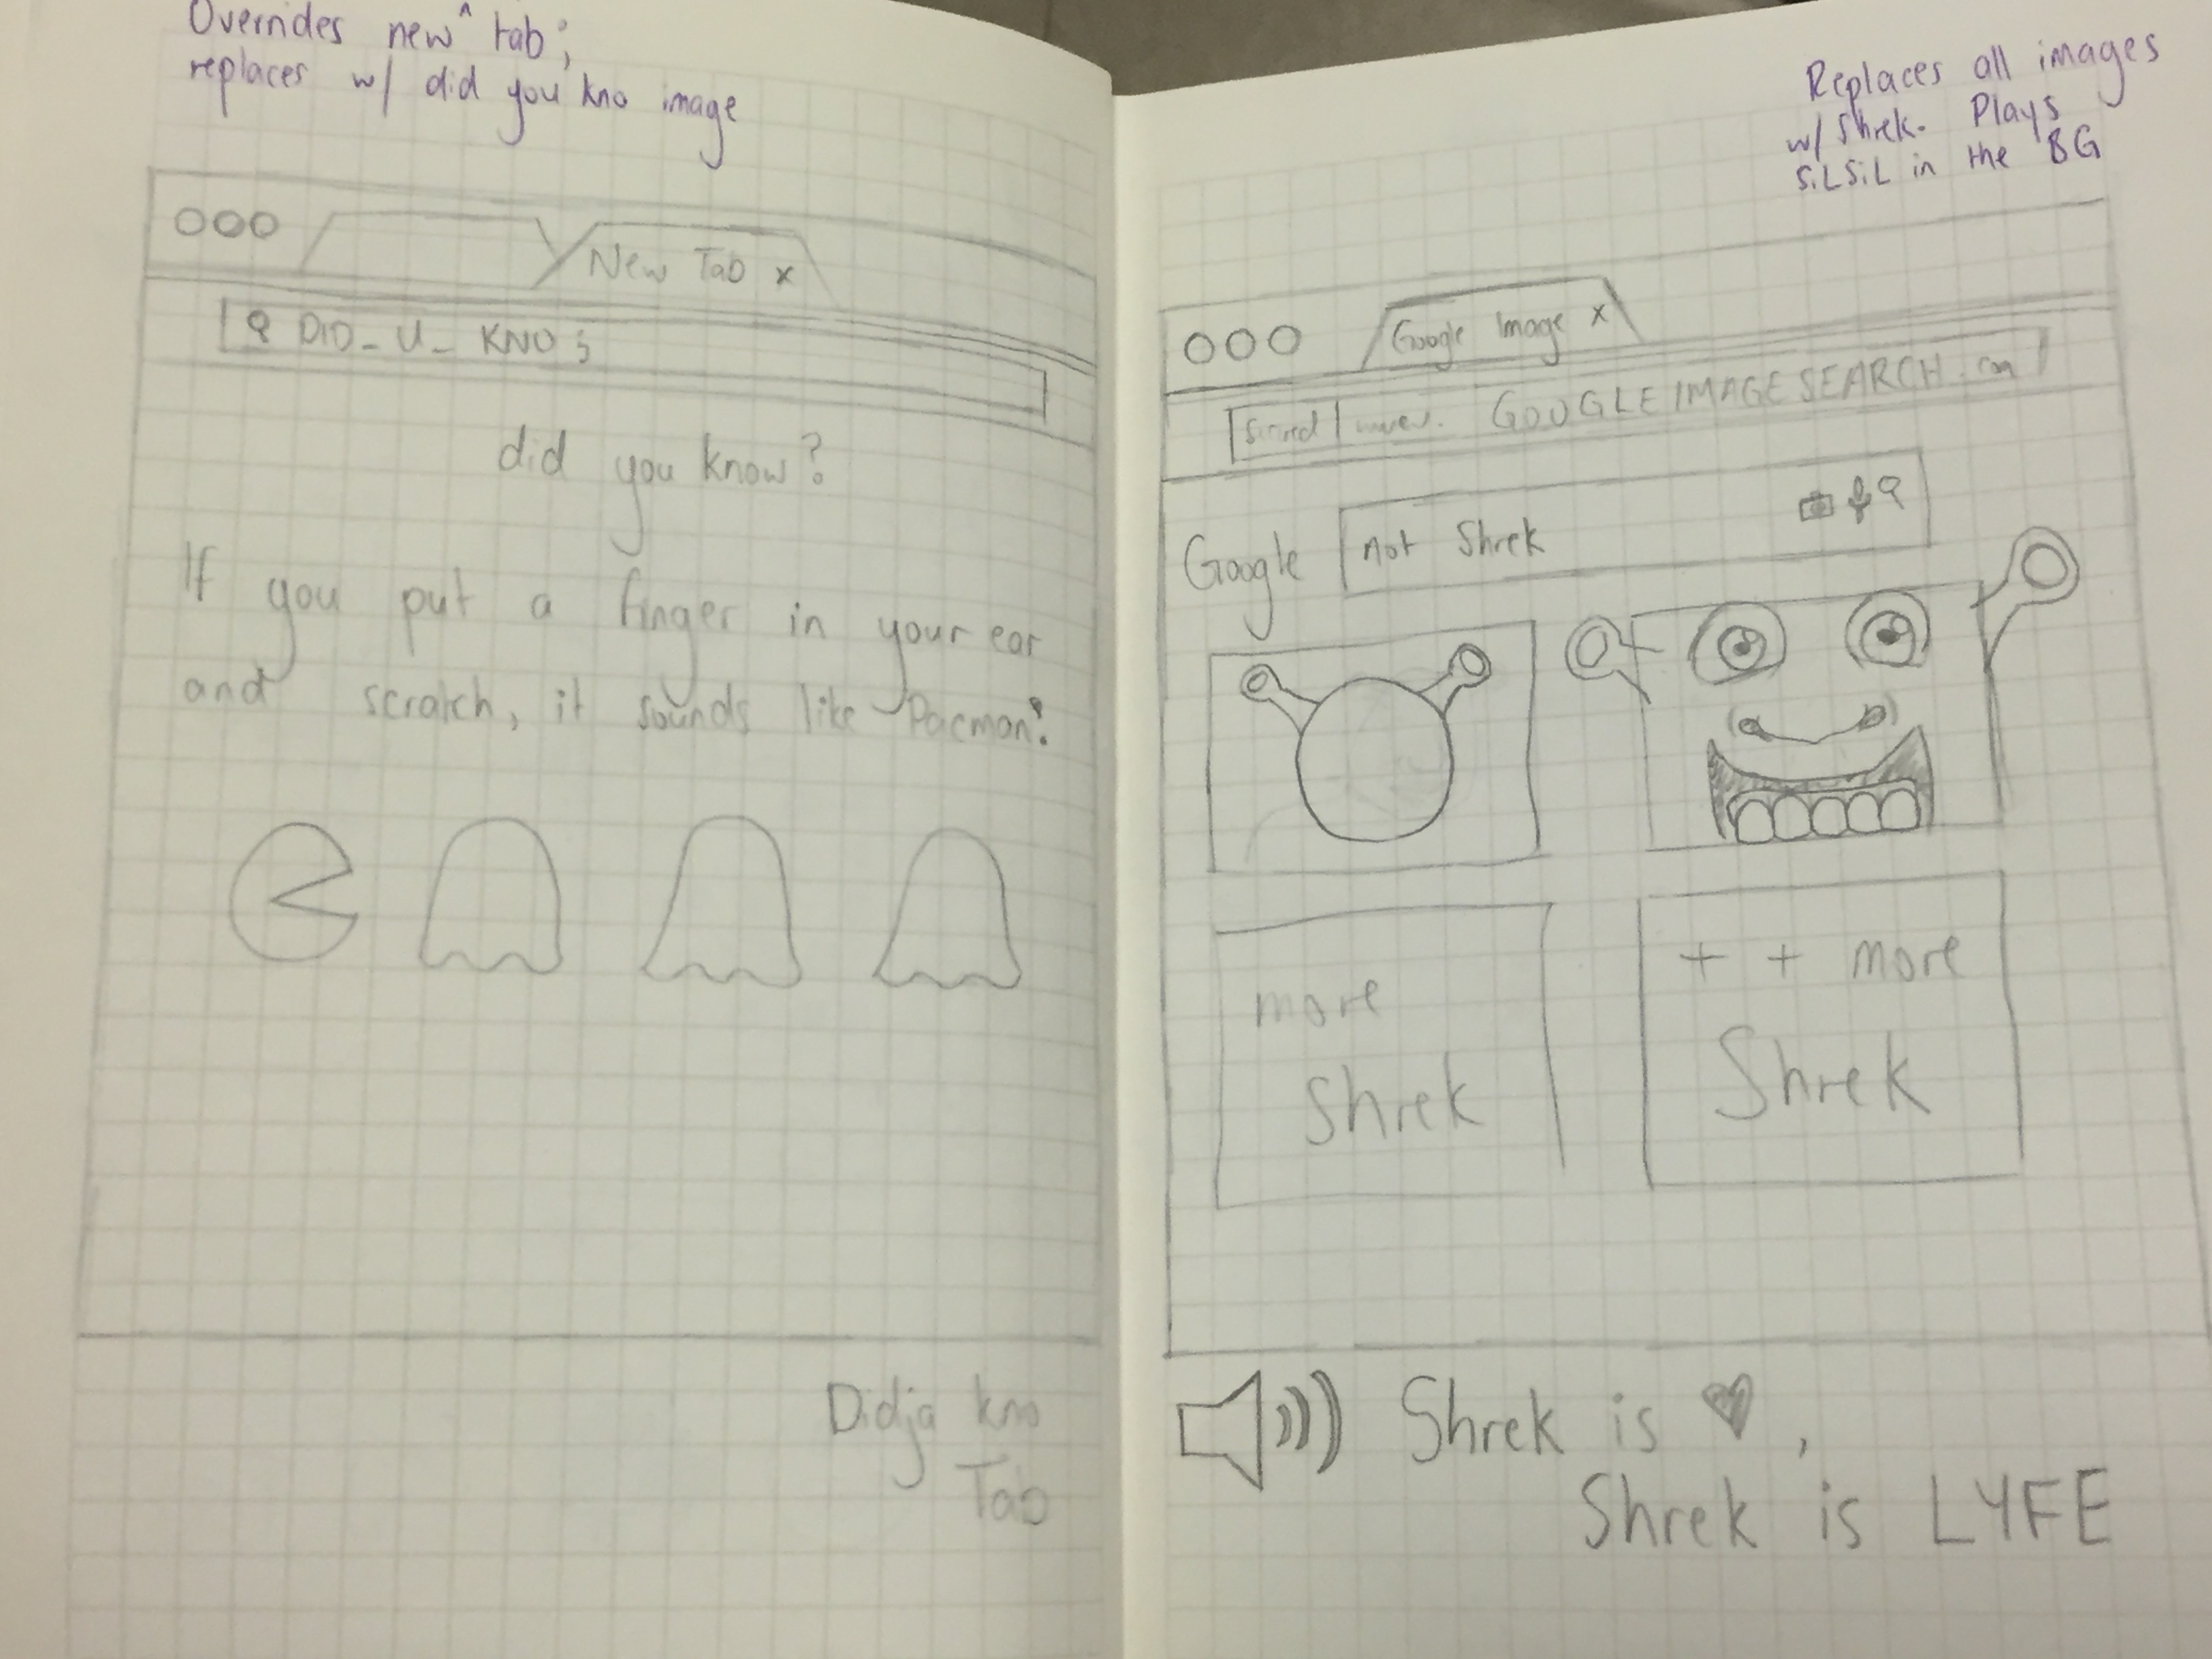 Overrides new^ tab;
replaces w/ did you kno image
New Tab x
DID_U_KNO;
did you know?
If you put a finger in your ear
and scratch, it sounds like Pacman?
Didja kno
Tab
Replaces all images
w/ Shrek. Plays
SiLSiL in the BG
Google Image x
GOOGLEIMAGESEARCH.com
Google not Shrek
more
Shrek
+ + more
Shrek
Shrek is ♥,
Shrek is LYFE